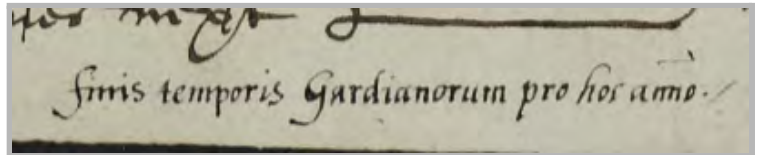 finis temporis Gardianorum pro hoc anno.